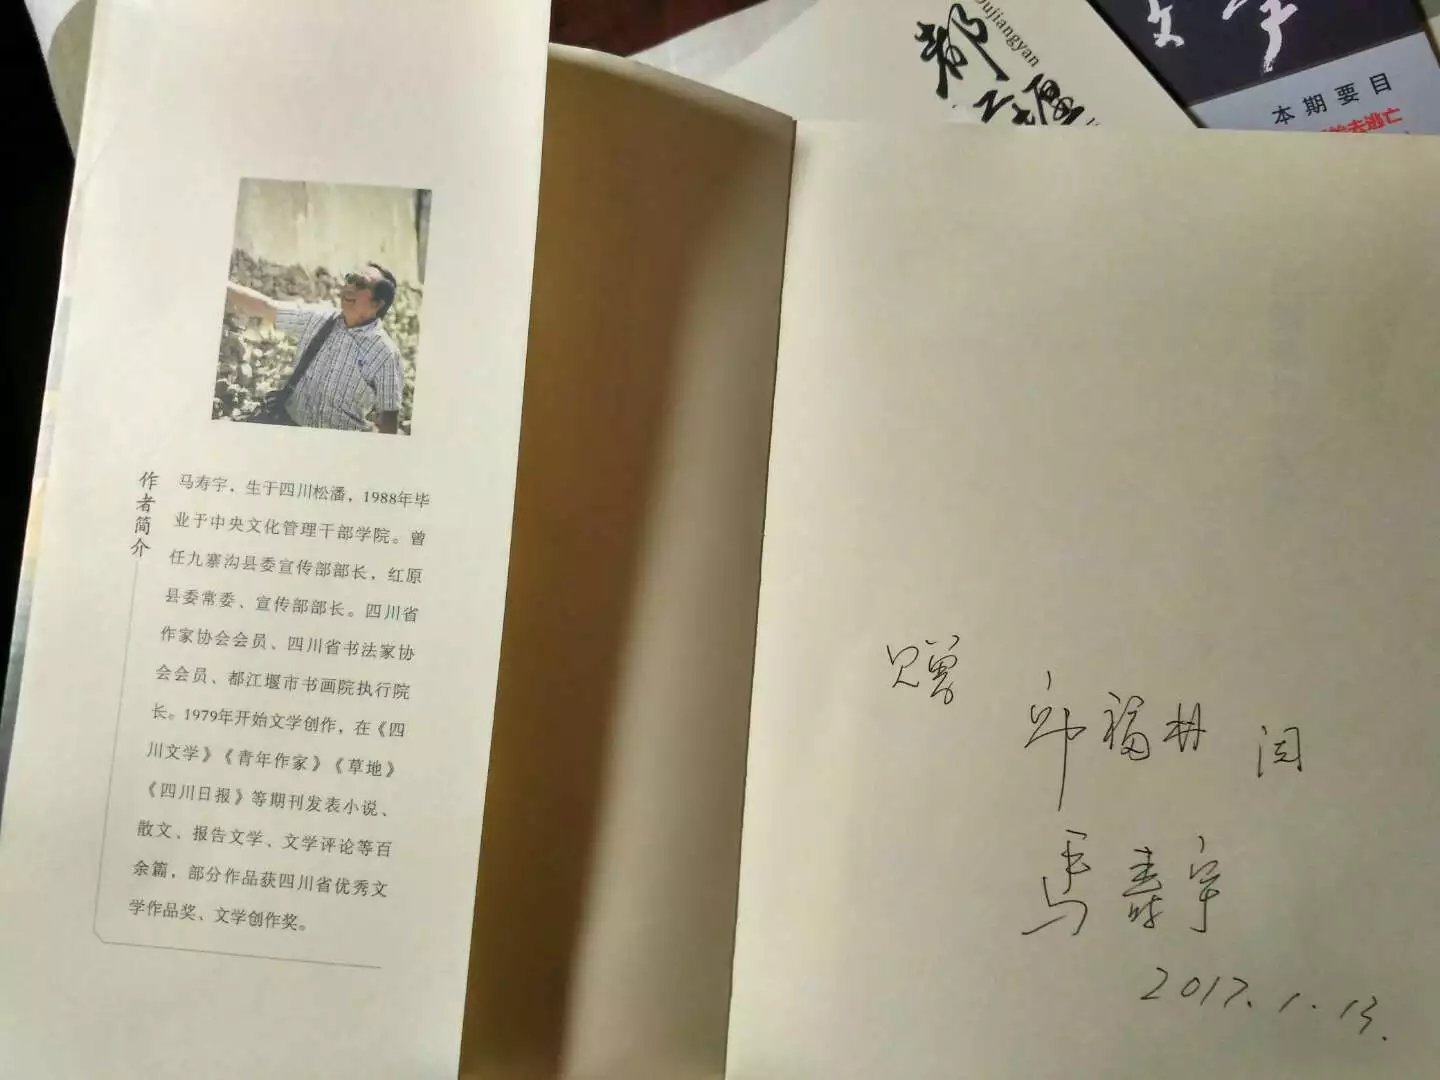 作者简介
马寿宇，生于四川松潘，1988年毕
业于中央文化管理干部学院。曾
任九寨沟县委宣传部部长，红原
县委常委、宣传部部长。四川省
作家协会会员、四川省书法家协
会会员、都江堰市书画院执行院
长。1979年开始文学创作，在《四
川文学》《青年作家》《草地》
《四川日报》等期刊发表小说、
散文、报告文学、文学评论等百
余篇，部分作品获四川省优秀文
学作品奖、文学创作奖。
Dujiangyan
都江堰
文学
本期要目
去逃亡
赠
福林
马寿宇
2017.1.13.